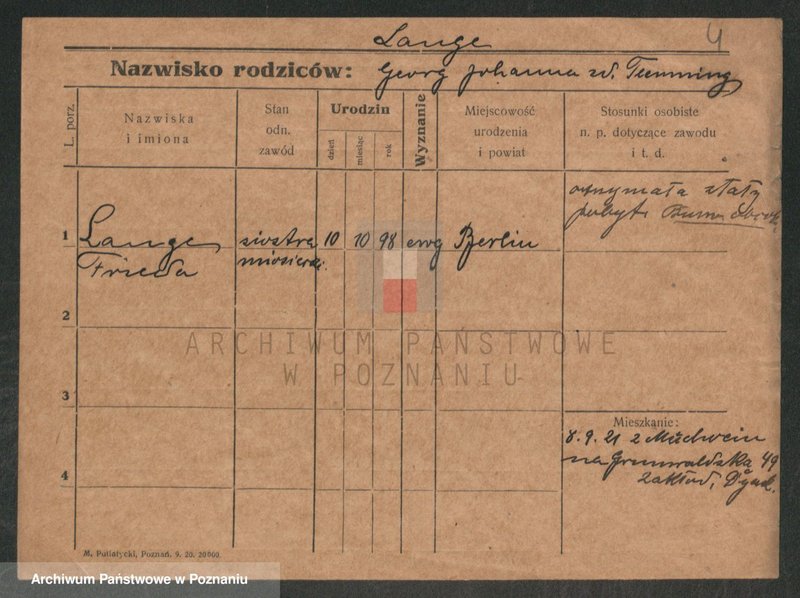 Lange
4
Nazwisko rodziców: Georg Johanna zd. Temming
L. porz.
Nazwiska
i imiona
Stan
odn.
zawód
Urodzin
dzień
miesiąc
rok
Wyznanie
Miejscowość
urodzenia
i powiat
Stosunki osobiste
n. p. dotyczące zawodu
i t. d.
otrzymała stały
pobyt
1 Lange siostra 10 10 98 ewg Berlin
Frieda miosierdz.
2
ARCHIWUM PAŃSTWOWE
W POZNANIU
3
Mieszkanie:
8.9.21 z
4
na Grunwaldzka 49
zakład,
M. Putiatycki, Poznań. 9. 20. 20000.
Archiwum Państwowe w Poznaniu